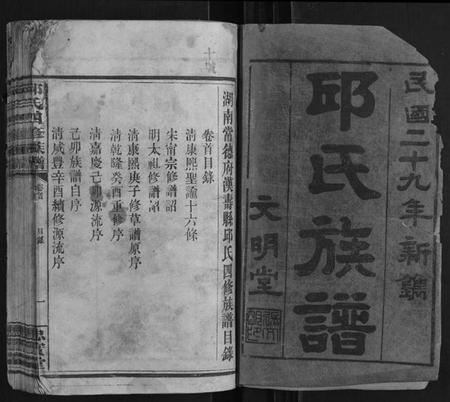 民國二十九年新鐫
邱氏族譜
文明堂
湖南常德府漢壽縣邱氏四修族譜目錄
卷首目錄
清康熙聖諭十六條
宋甯宗修譜詔
明太祖修譜詔
清康熙庚子修草譜原序
清乾隆癸酉重修序
清嘉慶己卯源流序
己卯族譜自序
清咸豐辛酉續修源流序
邱氏四修族譜
卷首
目錄
一